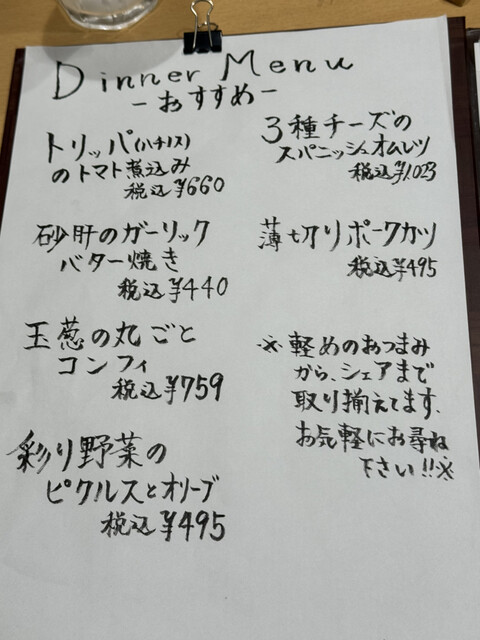 Dinner Menu
-おすすめ-
トリッパ(ハチノス)
のトマト煮込み
税込¥660
砂肝のガーリック
バター焼き
税込¥440
玉葱の丸ごと
コンフィ
税込¥759
彩り野菜の
ピクルスとオリーブ
税込¥495
3種チーズの
スパニッシュオムレツ
税込¥1,023
薄切りポークカツ
税込¥495
※軽めのおつまみ
から、シェアまで
取り揃えてます。
お気軽にお尋ね
下さい!!※